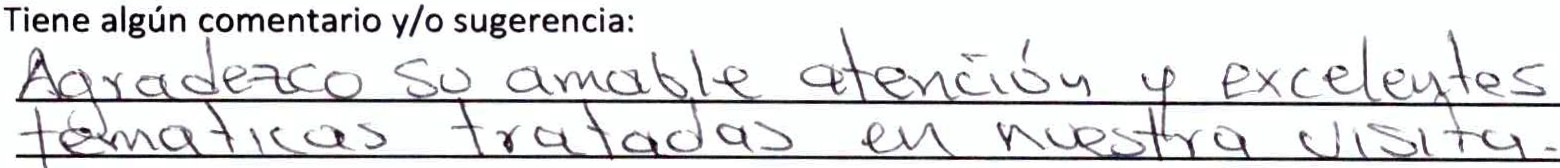 Tiene algún comentario y/o sugerencia:
Agradezco su amable atención y excelentes
tématicas tratadas en nuestra visita.